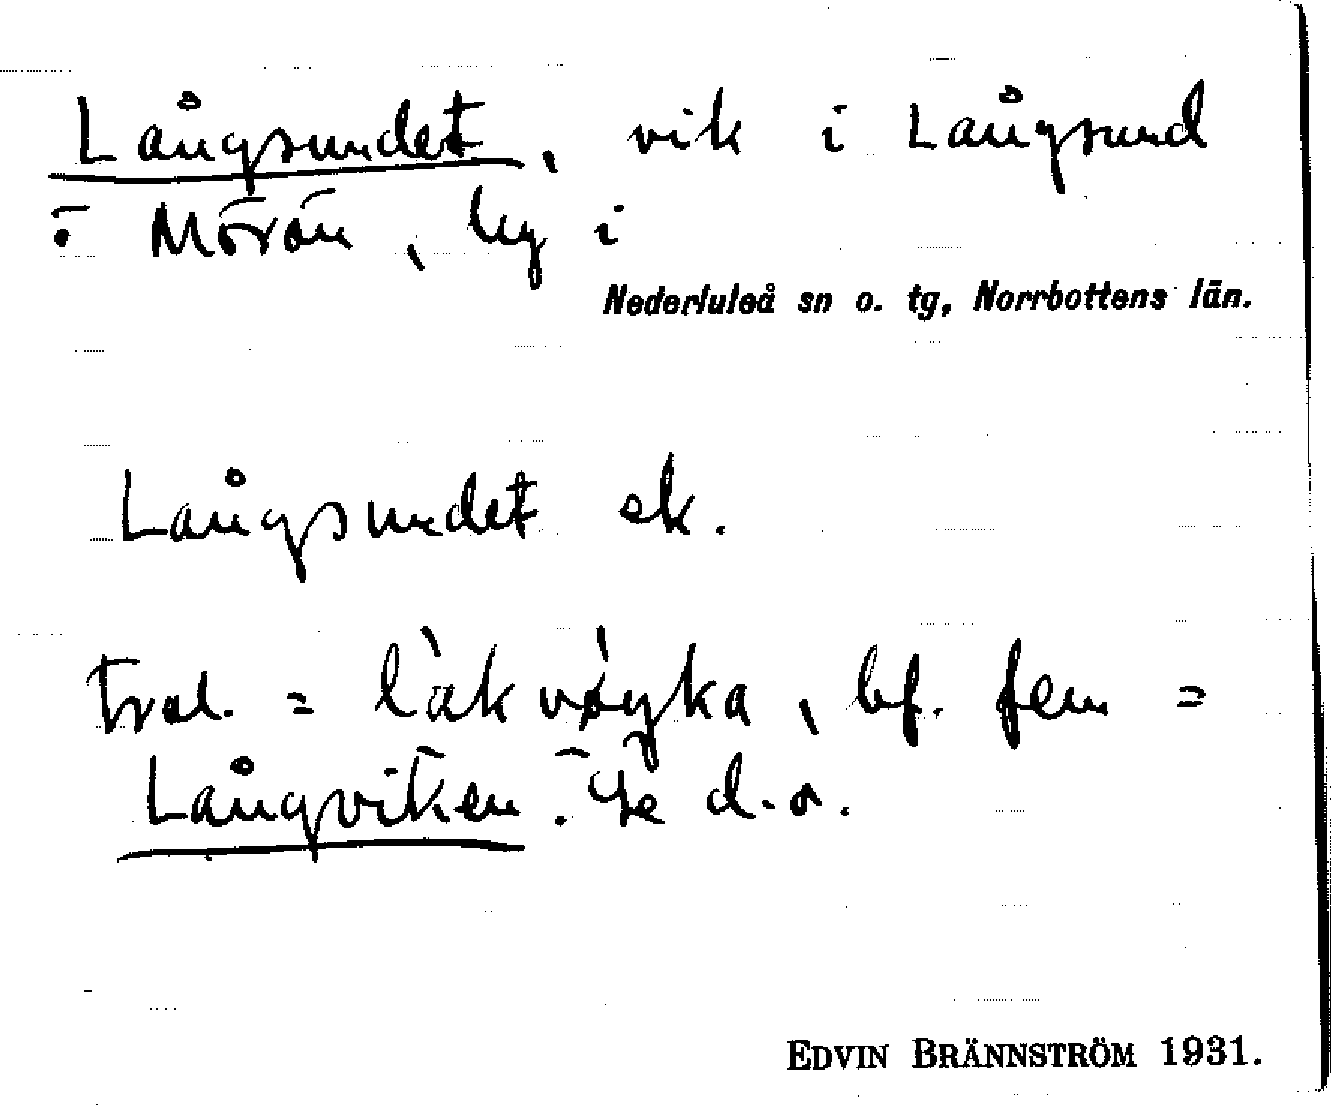 Långsundet, vik i Långsund
i Mörön, by i
Nederluleå sn o. tg, Norrbottens län.
Långsundet ek.
trol. = làkvøyka, bf. fem =
Långviken. Se d.o.
EDVIN BRÄNNSTRÖM 1931.